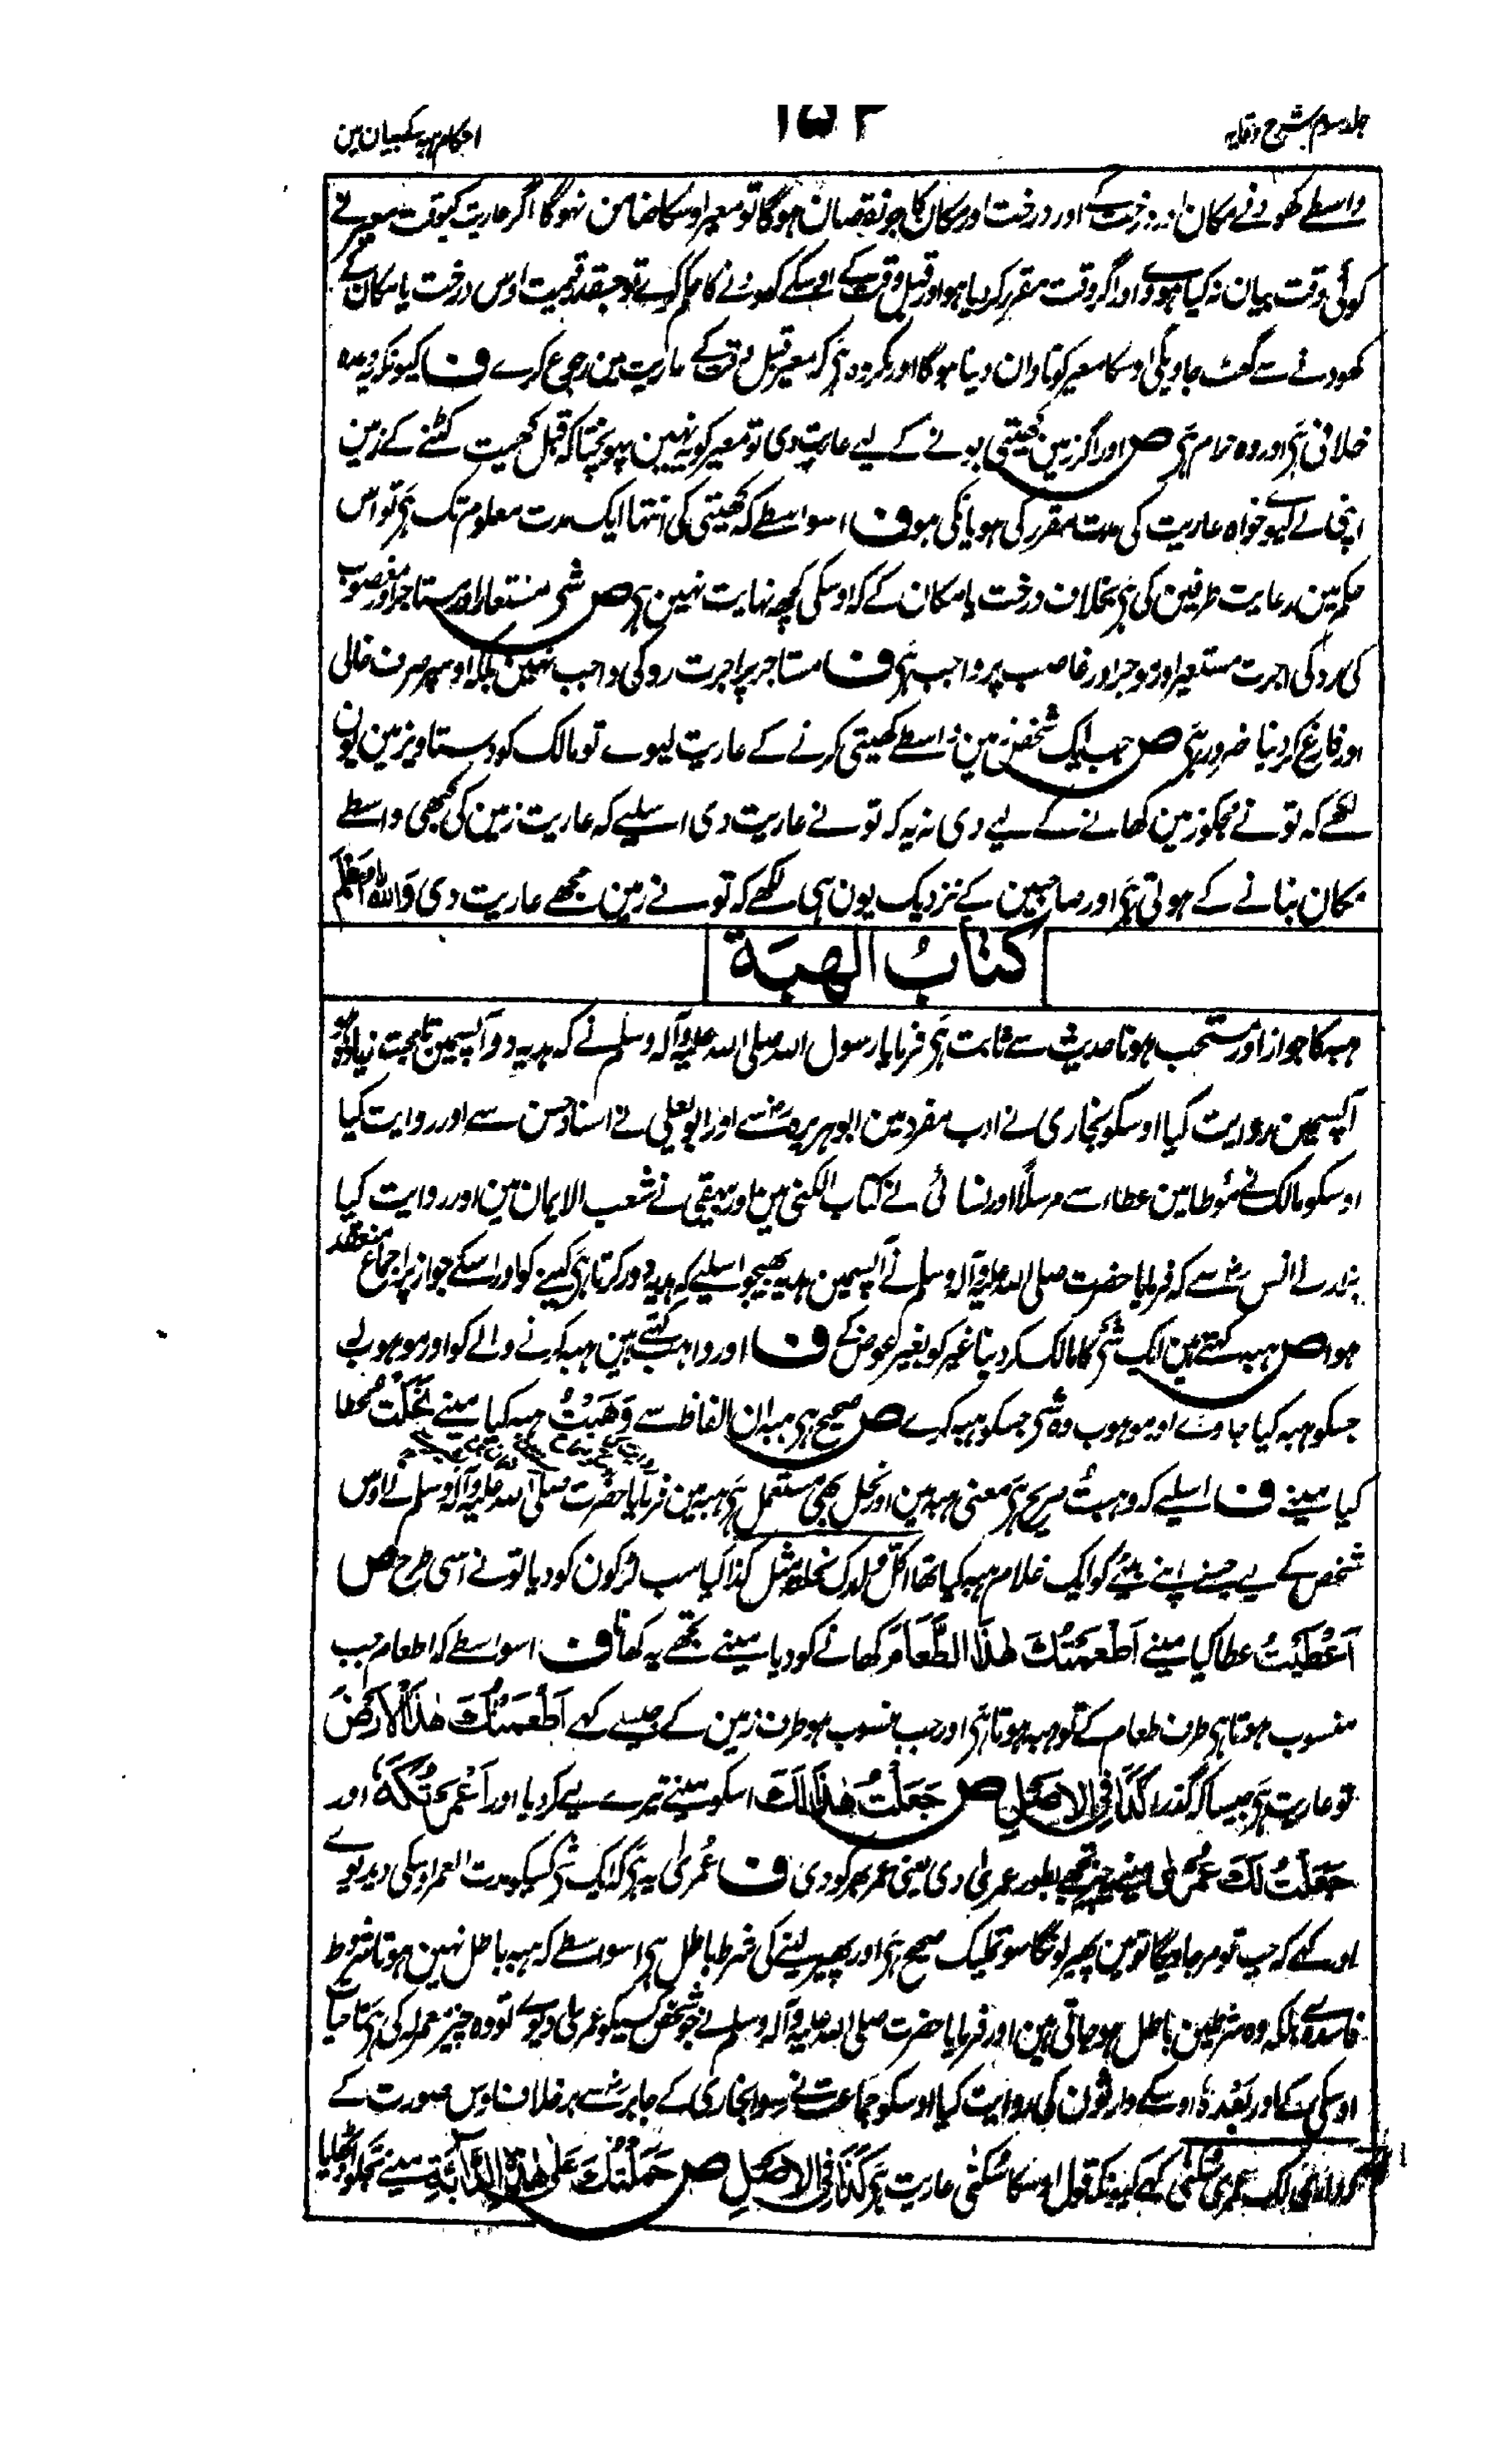 جلد سوم شرح وقایہ
۱۵۲
احکام ہبہ کے بیان مین
واسطے کھودنے مکان اور درخت کے اور درخت اور مکان کا جو نقصان ہوگا تو معیر اوسکا ضامن نہوگا اگر عاریت کیوقت معیر نے
کوئی وقت بیان نہ کیا ہووے اور اگر وقت مقرر کر دیا ہو اور قبل وقت کے اوسکے کھودنے کا حکم کرے تو جسقدر قیمت اوس درخت یا مکان کے
کھودنے سے گھٹ جاویگی اوسکا معیر کو تاوان دینا ہوگا اور مکروہ ہی کہ معیر قبل وقت کے عاریت مین رجوع کرے ف کیونکہ وعدہ
خلافی ہی اور وہ حرام ہی ص اور اگر زمین کھیتی بونے کے لیے عاریت دی تو معیر کو یہ نہین پہونچتا کہ قبل کھیت کٹنے کے زمین
اپنی لے لیوے خواہ عاریت کی مدت مقرر کی ہو یا نکی ہو ف اسواسطے کہ کھیتی کی انتہا ایک مدت معلوم تک ہی تو اس
حکم مین رعایت طرفین کی ہی بخلاف درخت یا مکان کے کہ اوسکی کچھ نہایت نہین ہی ص شی مستعار اور مستاجر اور مغصوب
کی رد کی اجرت مستعیر اور موجر اور غاصب پر واجب ہی ف مستاجر پر اجرت رد کی واجب نہین بلکہ اوسپر صرف خالی
اور فارغ کر دینا ضرور ہی ص جب ایک شخص زمین واسطے کھیتی کرنے کے عاریت لیوے تو مالک کو دستاویز مین یون
لکھے کہ تو نے مجکو زمین کھانے کے لیے دی نہ یہ کہ تو نے عاریت دی اسلیے کہ عاریت زمین کی کبھی واسطے
مکان بنانے کے ہوتی ہی اور صاحبین کے نزدیک یون ہی لکھے کہ تو نے زمین مجھے عاریت دی واللہ اعلم
کتابُ الھبَة
ہبہ کا جواز اور مستحب ہونا حدیث سے ثابت ہی فرمایا رسول اللہ صلی اللہ علیہ وآلہ وسلم نے کہ ہدیہ دو آپسمین تا محبت زیادہ ہو
آپسمین روایت کیا اوسکو بخاری نے ادب مفرد مین ابو ہریرہؓ سے اور ابو یعلی نے اسناد حسن سے اور روایت کیا
اوسکو مالک نے مؤطا مین عطاء سے مرسلاً اور نسائی نے کتاب الکنی مین اور بیہقی نے شعب الایمان مین اور روایت کیا
بزار نے انسؓ سے کہ فرمایا حضرت صلی اللہ علیہ وآلہ وسلم نے آپسمین ہدیہ بھیجو اسلیے کہ ہدیہ دور کرتا ہی کینے کو اور اسکے جواز پر اجماع منعقد
ہوا ص ہبہ کہتے ہین ایک شی کا مالک کر دینا غیر کو بغیر عوض کے ف اور واہب کہتے ہین ہبہ کرنے والے کو اور موہوب لہ
جسکو ہبہ کیا جاوے اور موہوب وہ شی جسکو ہبہ کرے ص صحیح ہی ہبہ ان الفاظ سے وَھَبْتُ ہبہ کیا مینے نَحَلْتُ عطا
کیا مینے ف اسلیے کہ وہبتُ صریح ہی معنی ہبہ مین اور نحل بھی مستعمل ہی ہبہ مین فرمایا حضرت صلی اللہ علیہ وآلہ وسلم نے اوس
شخص کے لیے جسنے اپنے بیٹے کو ایک غلام ہبہ کیا تھا اکل ولدک نحلتہ مثل کذا کیا سب لڑکون کو دیا تو نے اسی طرح ص
اَعْطَیْتُ عطا کیا مینے اَطْعَمْتُكَ ھٰذَا الطَّعَامَ کھانے کو دیا مینے تجھے یہ کھانا ف اسواسطے کہ اطعام جب
منسوب ہوتا ہی طرف طعام کے تو ہبہ ہوتا ہی اور جب منسوب ہو طرف زمین کے جیسے کہے اَطْعَمْتُكَ ھٰذَا الْاَرْضَ
تو عاریت ہی جیسا کہ گذرا کَذَا فِی الْاَصْلِ ص جَعَلْتُ ھٰذَا لَكَ اسکو مینے تیرے لیے کر دیا اور اَعْمَرْتُكَهٗ اور
جَعَلْتُ لَكَ عُمْرٰی مینے یہ چیز تجھے بطور عمریٰ دی یعنی عمر بھر کو دی ف عُمریٰ یہ ہی کہ ایک شی کسیکو مدت العمر اوسکی دیدیوے
اور کہے کہ جب تو مر جاویگا تو مین پھیر لونگا سو تملیک صحیح ہی اور پھیر لینے کی شرط باطل ہی اسواسطے کہ ہبہ باطل نہین ہوتا شروط
فاسدہ سے بلکہ وہ شرطین باطل ہو جاتی ہین اور فرمایا حضرت صلی اللہ علیہ وآلہ وسلم نے جو شخص کسیکو عمریٰ دیوے تو وہ چیز معمر لہ کی ہی تا حیات
اوسکی کے اور بعدہ اوسکے وارثون کی روایت کیا اوسکو جماعت نے سوا بخاری کے جابرؓ سے بر خلاف اوس صورت کے
داری لک عمری سُکنٰی کہے کیونکہ قول اوسکا سُکنٰی عاریت ہی کَذَا فِی الْاَصْلِ ص حَمَلْتُكَ عَلٰی ھٰذِهِ الدَّابَّةِ مینے تجکو اوٹھایا